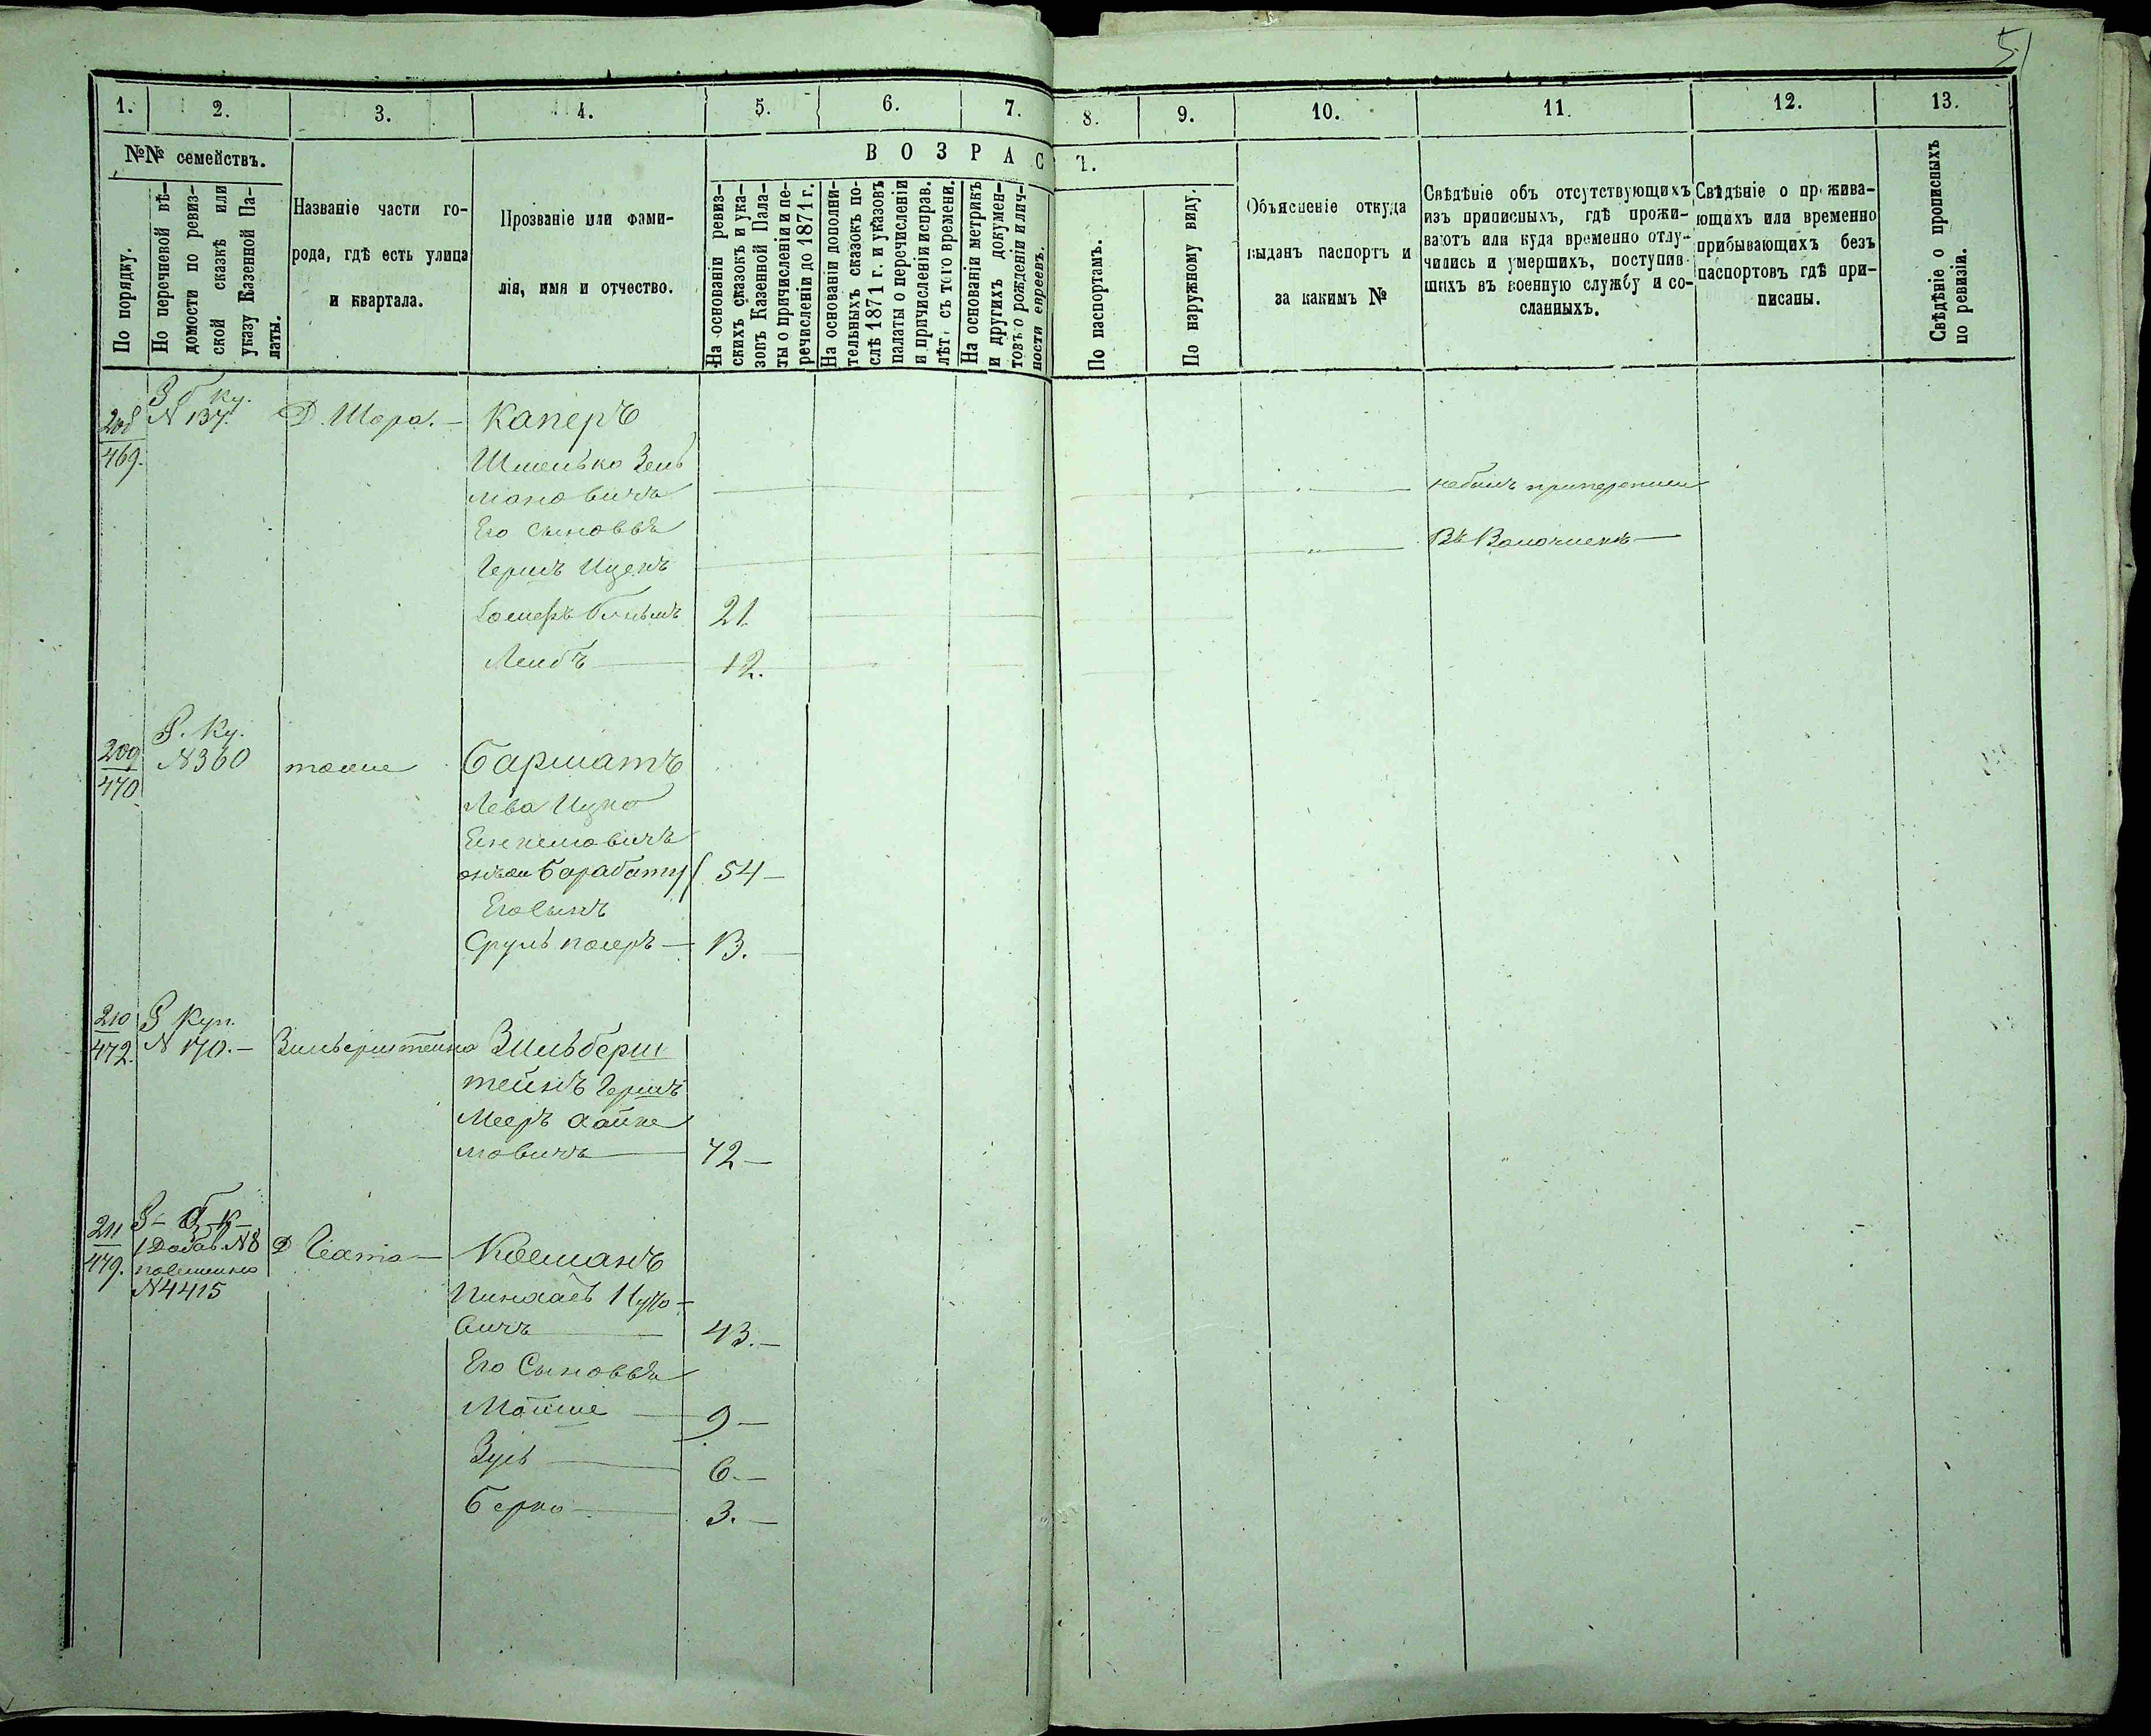 51
1. 2. 3. 4. 5. 6. 7. 8. 9. 10. 11. 12. 13.
№№ семействъ.
В О З Р А С Т.
По порядку.
По перечневой вѣ-
домости по ревиз-
ской сказкѣ или
указу Казенной Па-
латы.
Названіе части го-
рода, гдѣ есть улица
и квартала.
Прозваніе или фами-
лія, имя и отчество.
На основаніи ревиз-
скихъ сказокъ и ука-
зовъ Казенной Пала-
ты о причисленіи и пе-
речисленіи до 1871 г.
На основаніи дополни-
тельныхъ сказокъ по-
слѣ 1871 г. и указовъ
палаты о перечисленіи
и причисленіи исправ.
лѣт. съ того времени.
На основаніи метрикъ
и другихъ докумен-
товъ о рожденіи и лич-
ности евреевъ.
По паспортамъ.
По наружному виду.
Объясненіе откуда
выданъ паспортъ и
за какимъ №
Свѣдѣніе объ отсутствующихъ
изъ приписныхъ, гдѣ прожи-
ваютъ или куда временно отлу-
чились и умершихъ, поступив-
шихъ въ военную службу и со-
сланныхъ.
Свѣдѣніе о прожива-
ющихъ или временно
прибывающихъ безъ
паспортовъ гдѣ при-
писаны.
Свѣдѣніе о прописныхъ
по ревизіи.
208
469.
№ 137.
Д. Шора. —
Каперъ
Шмелько Зель
мановичъ
Его сыновья
Гершъ Ицекъ
21.
Лейбъ — 12.
Въ Волочискѣ —
209
470
№ 360
тоже
Бармать
Лева Ицко
54 —
Его сынъ
Сруль — 13.
210
472.
Куп.
№ 170. —
Зильберштейна
Зильберш
тейнъ Гершъ
Мееръ Хаике
мовичъ — 42 —
211
479.
№ 8
№ 4415
Косманъ
Пинхасъ Ицко-
вичъ — 43. —
Его Сыновья
Мойше — 9 —
Зусь — 6. —
Берко — 3. —